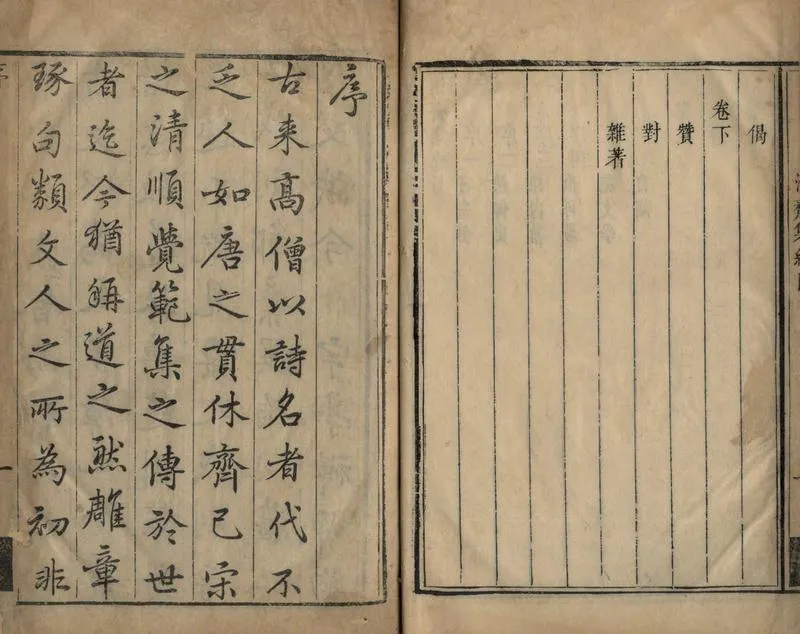 偈
卷下
贊
對
雜著
序
古来髙僧以詩名者代不
乏人如唐之貫休齊己宋
之清順覺範集之傳於世
者迄今猶稱道之然雕章
琢句類文人之所為初非